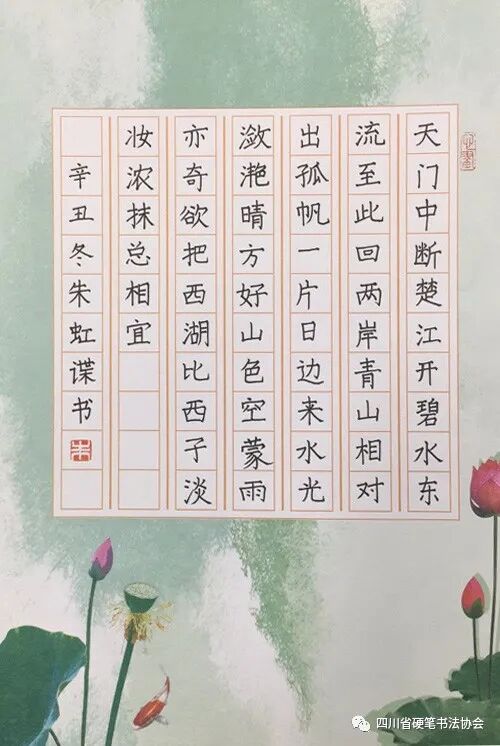 天门中断楚江开碧水东
流至此回两岸青山相对
出孤帆一片日边来水光
潋滟晴方好山色空蒙雨
亦奇欲把西湖比西子淡
妆浓抹总相宜
辛丑冬朱虹谍书
四川省硬笔书法协会